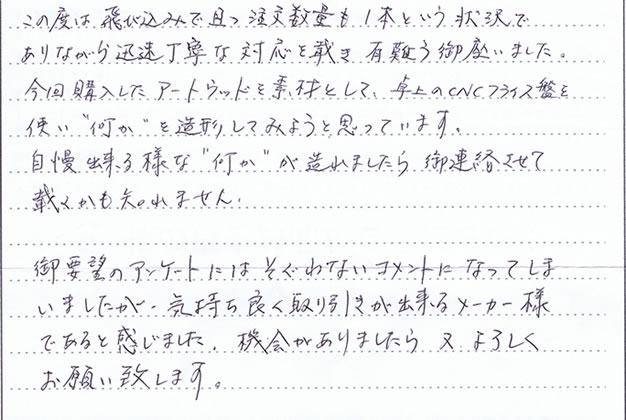 この度は飛び込みで且つ注文数量も1本という状況で
ありながら迅速丁寧な対応を戴き有難う御座いました。
今回購入したアートウッドを素材として、卓上のCNCフライス盤を
使い"何か"を造形してみようと思っています。
自慢出来る様な"何か"が造れましたら御連絡させて
戴くかも知れません.
御要望のアンケートにはそぐわないコメントになってしま
いましたが、気持ち良く取り引きが出来るメーカー様
であると感じました. 機会がありましたら又よろしく
お願い致します。